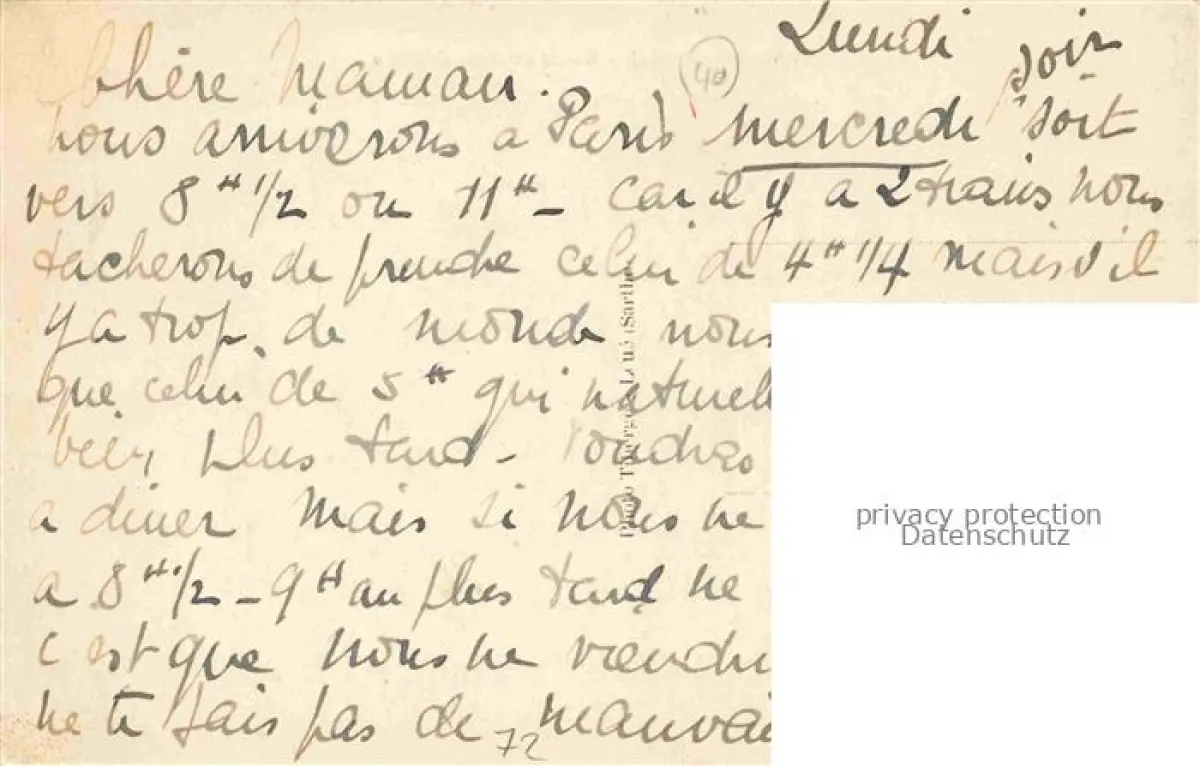 Lundi
soir
40
Chère Maman.
nous arriverons a Paris mercredi soit
vers 8 H 1/2 ou 11 H – car il y a 2 trains nous
tacherons de prendre celui de 4 H 1/4 mais s'il
y a trop de monde nous
que celui de 5 H qui naturell
bien plus tard –
a diner mais si nous ne
a 8 H 1/2 – 9 H au plus tard ne
c'est que nous ne viendr
ne te fais pas de mauvai
72
(Sarthe)
privacy protection
Datenschutz